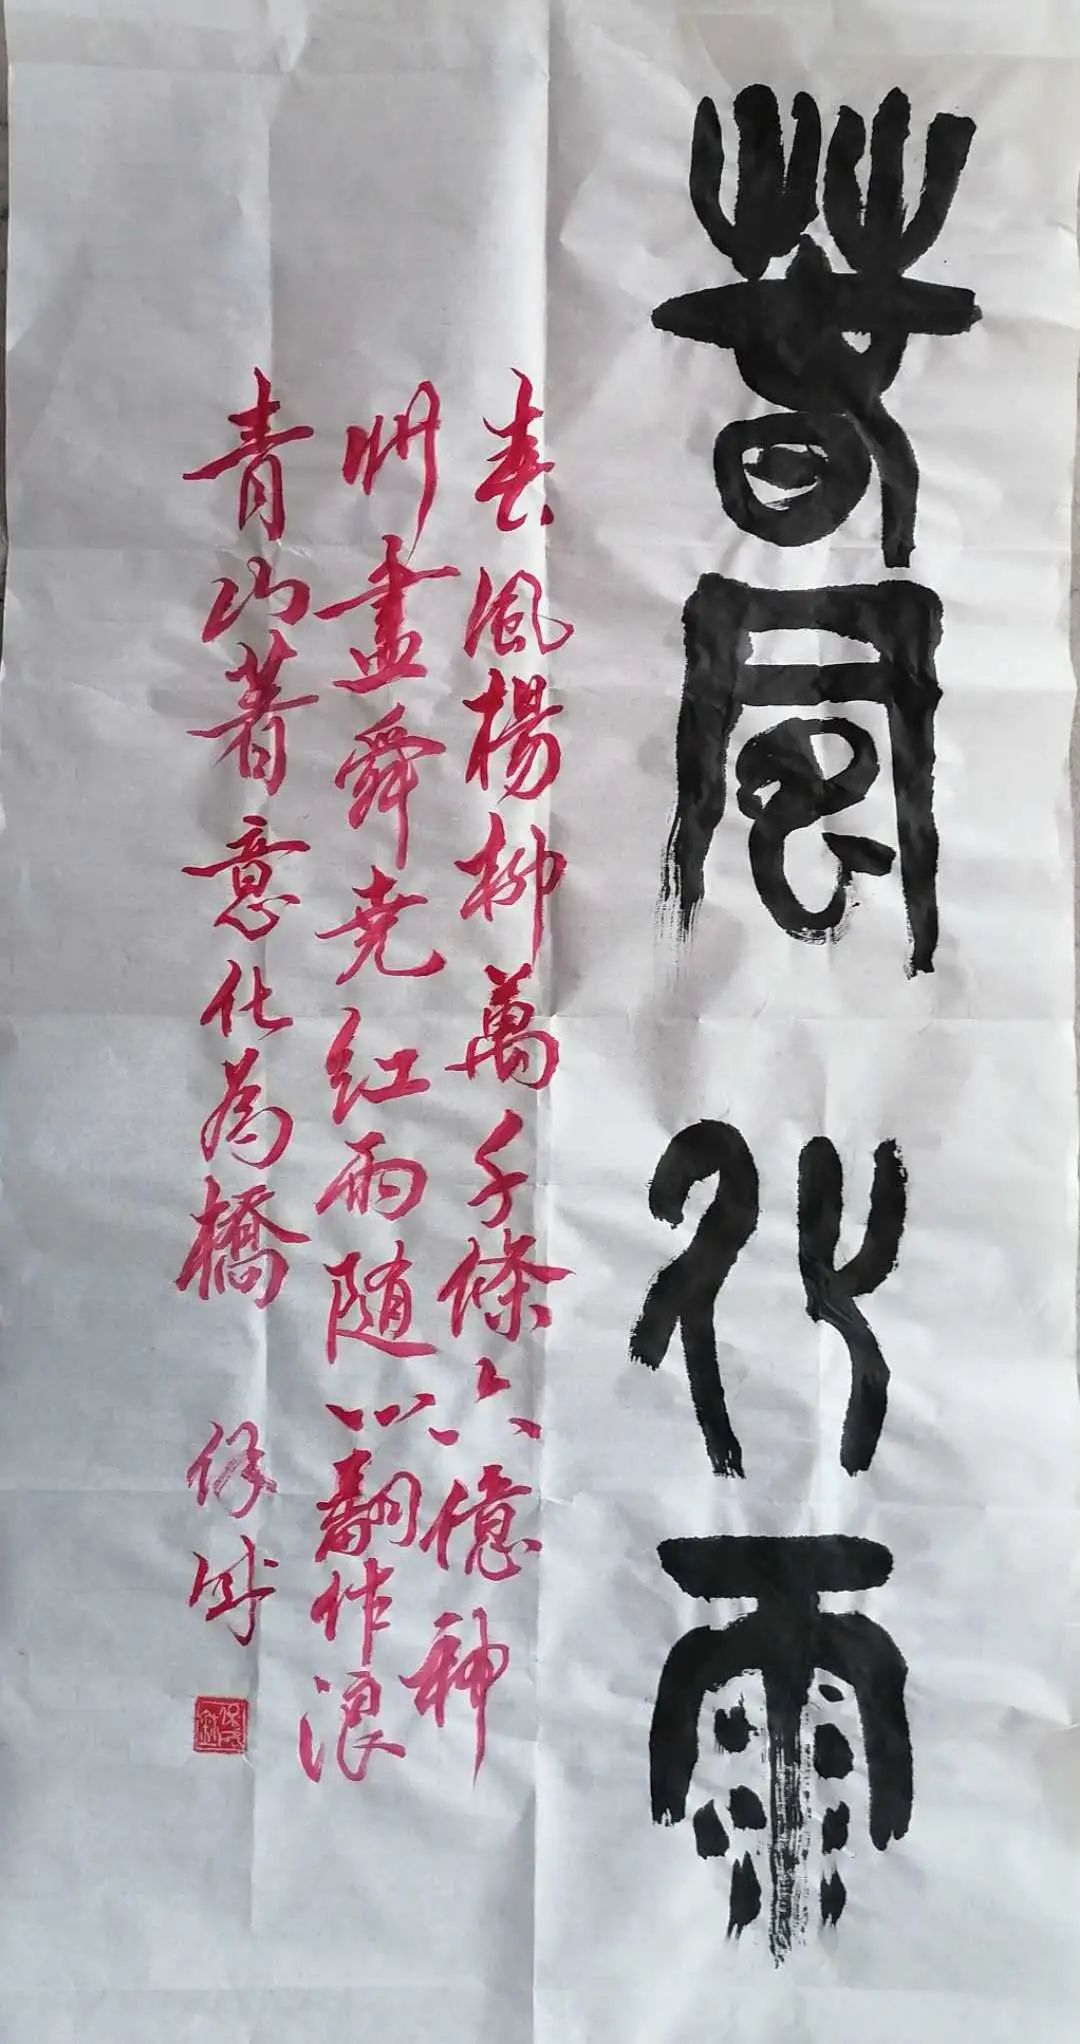 春風化雨
春風楊柳萬千條六億神
州盡舜尭紅雨随心翻作浪
青山著意化為橋